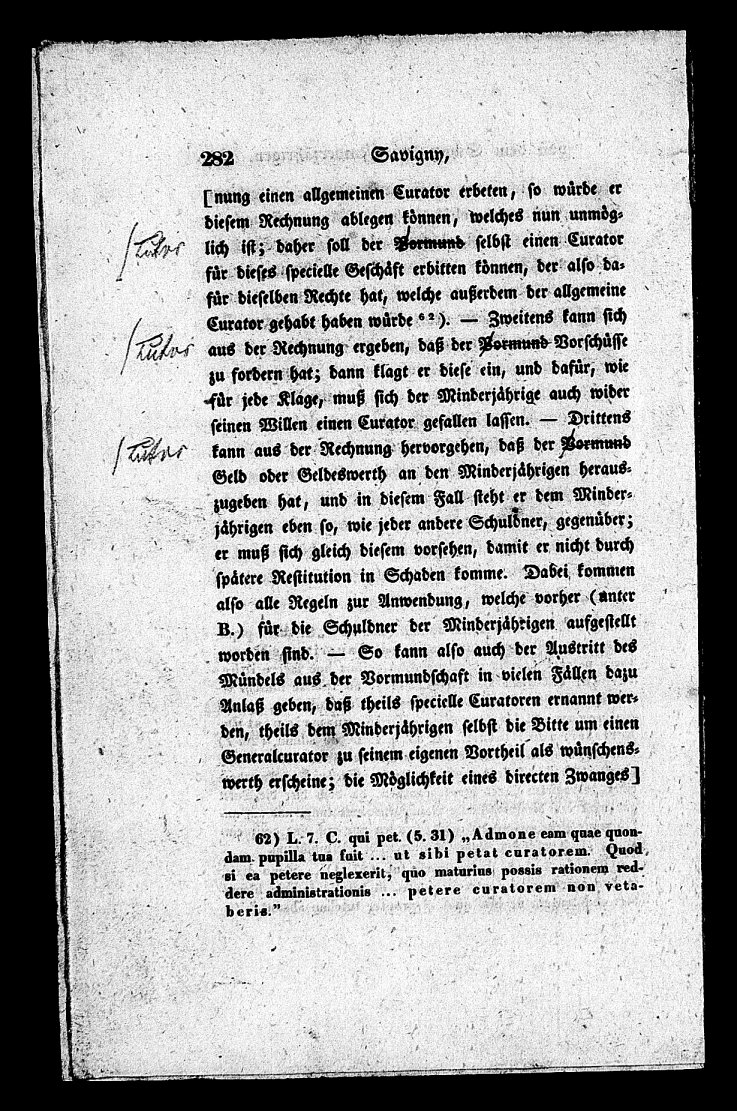 282 Savigny,
[nung einen allgemeinen Curator erbeten, so würde er
diesem Rechnung ablegen können, welches nun unmög-
/Tutor
lich ist; daher soll der Vormund selbst einen Curator
für dieses specielle Geschäft erbitten können, der also da-
für dieselben Rechte hat, welche außerdem der allgemeine
Curator gehabt haben würde 62). — Zweitens kann sich
/Tutor
aus der Rechnung ergeben, daß der Vormund Vorschüsse
zu fordern hat; dann klagt er diese ein, und dafür, wie
für jede Klage, muß sich der Minderjährige auch wider
seinen Willen einen Curator gefallen lassen. — Drittens
/Tutor
kann aus der Rechnung hervorgehen, daß der Vormund
Geld oder Geldeswerth an den Minderjährigen heraus-
zugeben hat, und in diesem Fall steht er dem Minder-
jährigen eben so, wie jeder andere Schuldner, gegenüber;
er muß sich gleich diesem vorsehen, damit er nicht durch
spätere Restitution in Schaden komme. Dabei kommen
also alle Regeln zur Anwendung, welche vorher (unter
B.) für die Schuldner der Minderjährigen aufgestellt
worden sind. — So kann also auch der Austritt des
Mündels aus der Vormundschaft in vielen Fällen dazu
Anlaß geben, daß theils specielle Curatoren ernannt wer-
den, theils dem Minderjährigen selbst die Bitte um einen
Generalcurator zu seinem eigenen Vortheil als wünschens-
werth erscheine; die Möglichkeit eines directen Zwanges]
62) L. 7. C. qui pet. (5. 31) „Admone eam quae quon-
dam pupilla tua fuit ... ut sibi petat curatorem. Quod
si ea petere neglexerit, quo maturius possis rationem red-
dere administrationis ... petere curatorem non veta-
beris."